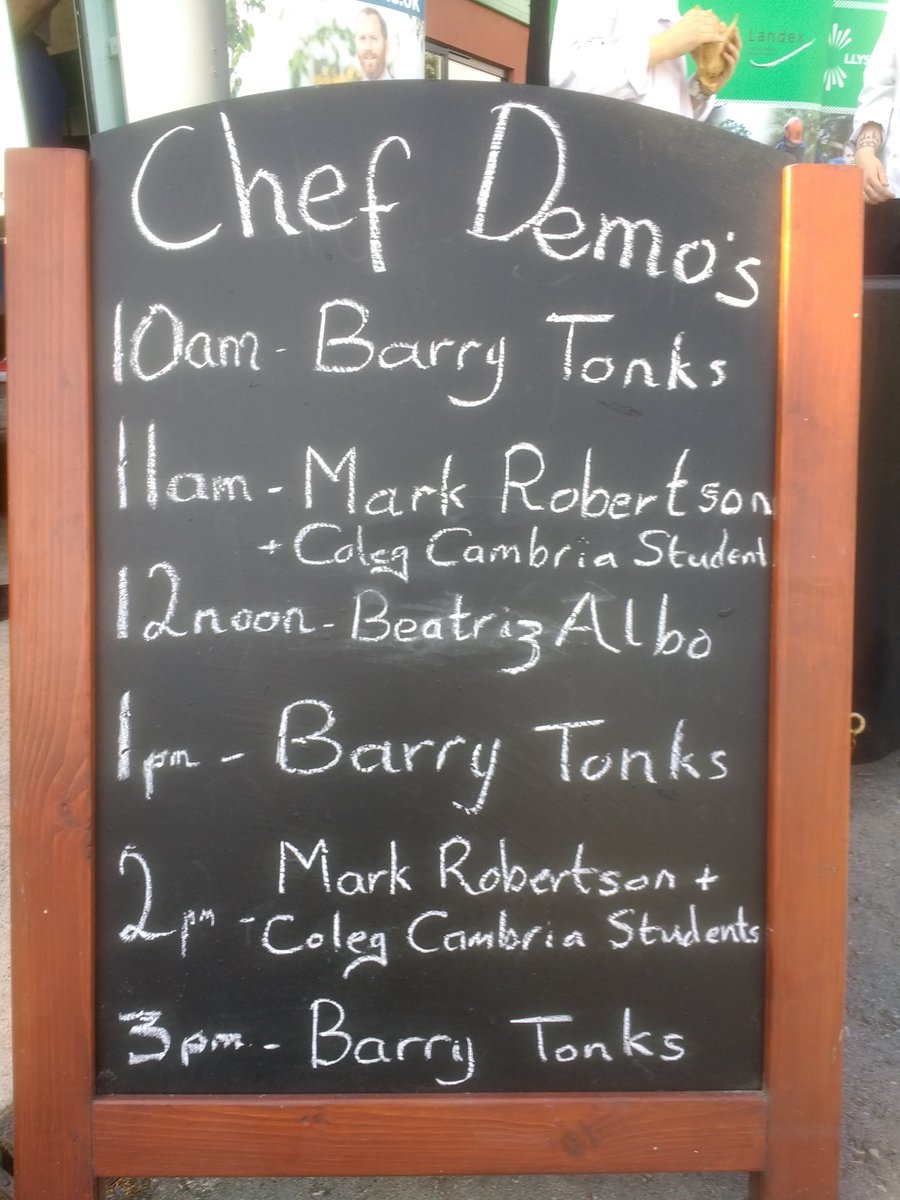 Landex
LLYS
Chef Demo's
10am - Barry Tonks
11am - Mark Robertson
+ Coleg Cambria Student
12noon - Beatriz Albo
1pm - Barry Tonks
Mark Robertson +
2pm - Coleg Cambria Students
3pm - Barry Tonks